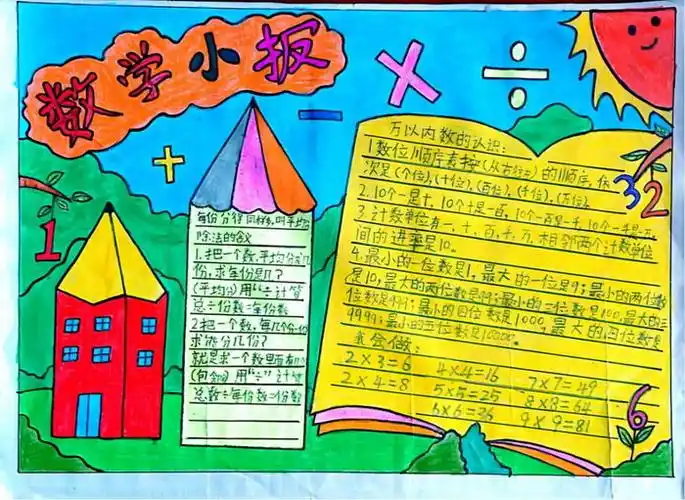 数学小报
每份分得同样多,叫平均分
除法的含义
1.把一个数,平均分成几
份,求每份是几?
(平均分)用“÷”计算
总÷份数=每份数
2.把一个数,每几个一份
求能分几份?
就是求一个数里面有几个
(包含)用“÷”计算
总数÷每份数=份数
万以内数的认识:
1.数位顺序表按(从右往左)的顺序,依
次是(个位),(十位),(百位),(千位),(万位)。
2.10个一是十,10个十是一百,10个一百是一千,10个一千是一万。
3.计数单位有一,十,百,千,万,相邻两个计数单位
间的进率是10。
4.最小的一位数是1,最大的一位是9;最小的两位数
是10,最大的两位数是99;最小的三位数是100,最大的三
位数是999;最小的四位数是1000,最大的四位数是
9999;最小的五位数是10000。
我会做:
2×3=6 4×4=16 7×7=49
2×4=8 5×5=25 8×8=64
6×6=36 9×9=81
+
-
×
÷
1
3
2
6